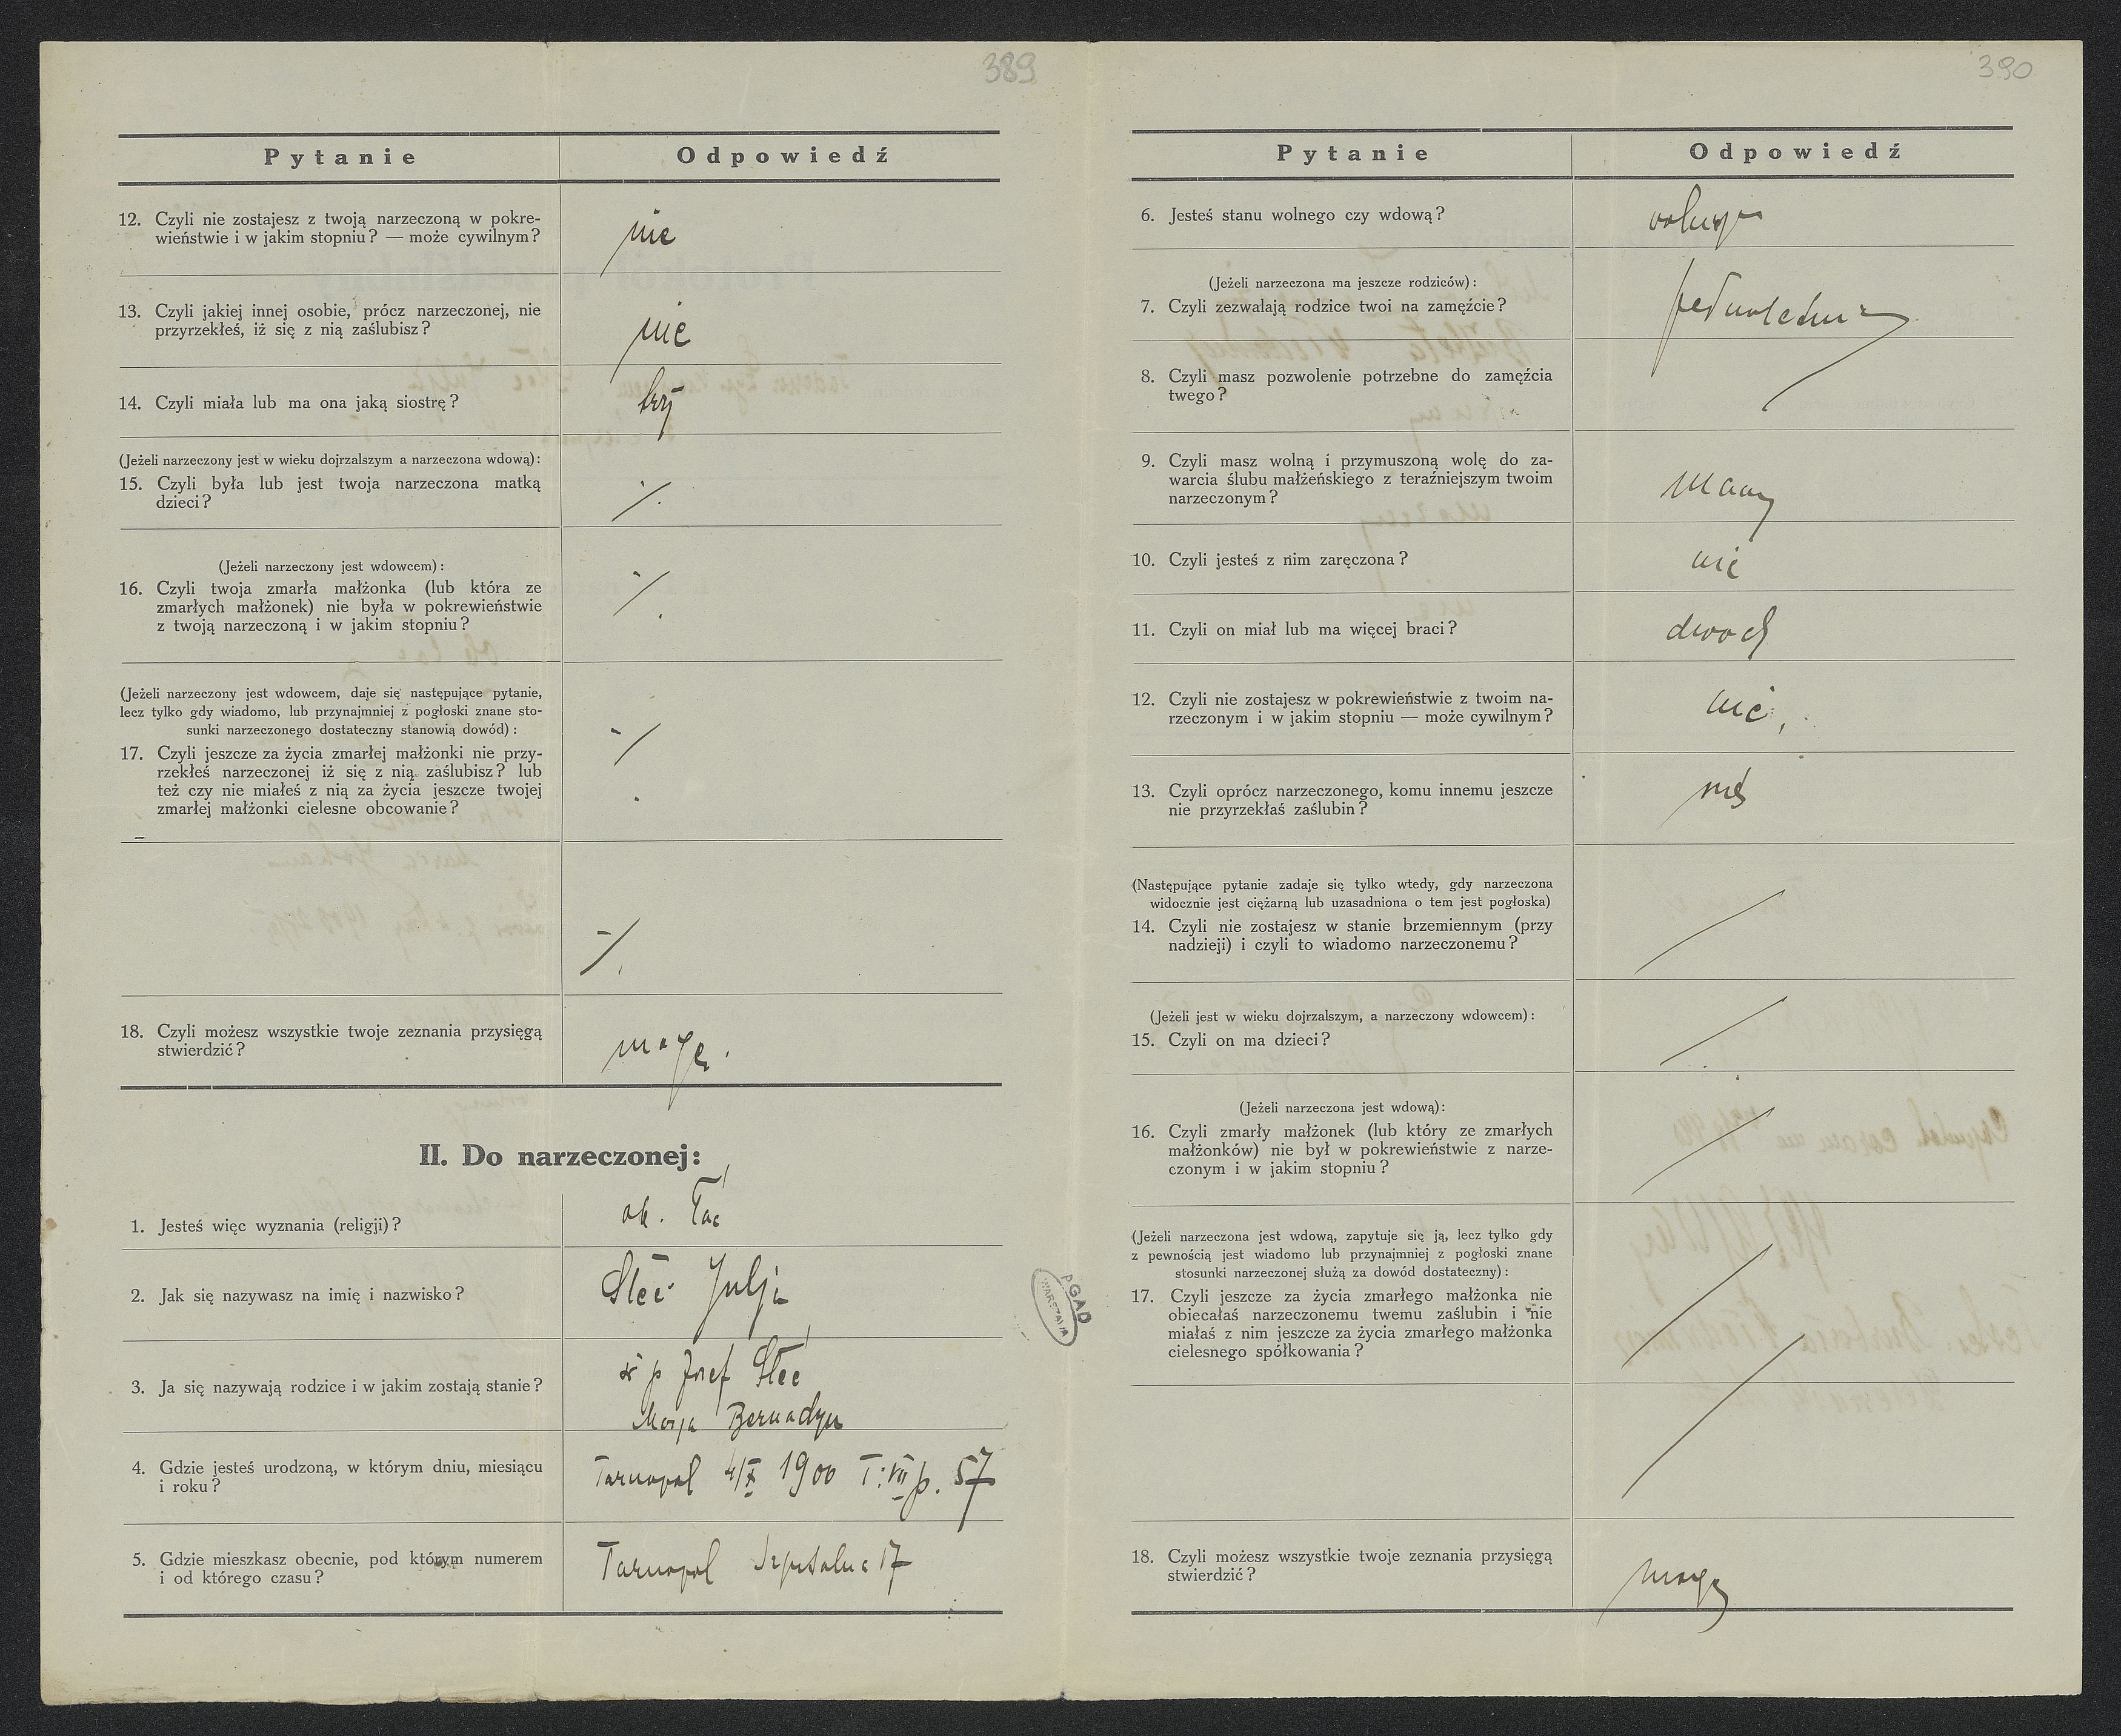 389
Pytanie Odpowiedź
12. Czyli nie zostajesz z twoją narzeczoną w pokre-
wieństwie i w jakim stopniu? — może cywilnym?
nie
13. Czyli jakiej innej osobie, prócz narzeczonej, nie
przyrzekłeś, iż się z nią zaślubisz?
nie
14. Czyli miała lub ma ona jaką siostrę?
trzy
(Jeżeli narzeczony jest w wieku dojrzalszym a narzeczona wdową):
15. Czyli była lub jest twoja narzeczona matką
dzieci?
(Jeżeli narzeczony jest wdowcem):
16. Czyli twoja zmarła małżonka (lub która ze
zmarłych małżonek) nie była w pokrewieństwie
z twoją narzeczoną i w jakim stopniu?
(Jeżeli narzeczony jest wdowcem, daje się następujące pytanie,
lecz tylko gdy wiadomo, lub przynajmniej z pogłoski znane sto-
sunki narzeczonego dostateczny stanowią dowód):
17. Czyli jeszcze za życia zmarłej małżonki nie przy-
rzekłeś narzeczonej iż się z nią zaślubisz? lub
też czy nie miałeś z nią za życia jeszcze twojej
zmarłej małżonki cielesne obcowanie?
18. Czyli możesz wszystkie twoje zeznania przysięgą
stwierdzić?
mogę.
II. Do narzeczonej:
1. Jesteś więc wyznania (religji)?
ob. łać
2. Jak się nazywasz na imię i nazwisko?
Steć Julja
3. Ja się nazywają rodzice i w jakim zostają stanie?
ś p Józef Steć
Marja Bernadyn
4. Gdzie jesteś urodzoną, w którym dniu, miesiącu
i roku?
Tarnopol 4/X 1900 T: VII p. 57
5. Gdzie mieszkasz obecnie, pod którym numerem
i od którego czasu?
Tarnopol Szpitalna 17
AGAD
WARSZAWA
390
Pytanie Odpowiedź
6. Jesteś stanu wolnego czy wdową?
wolnego
(Jeżeli narzeczona ma jeszcze rodziców):
7. Czyli zezwalają rodzice twoi na zamęźcie?
8. Czyli masz pozwolenie potrzebne do zamęźcia
twego?
9. Czyli masz wolną i przymuszoną wolę do za-
warcia ślubu małżeńskiego z teraźniejszym twoim
narzeczonym?
mam
10. Czyli jesteś z nim zaręczona?
nie
11. Czyli on miał lub ma więcej braci?
dwóch
12. Czyli nie zostajesz w pokrewieństwie z twoim na-
rzeczonym i w jakim stopniu — może cywilnym?
nie,
13. Czyli oprócz narzeczonego, komu innemu jeszcze
nie przyrzekłaś zaślubin?
nie
(Następujące pytanie zadaje się tylko wtedy, gdy narzeczona
widocznie jest ciężarną lub uzasadniona o tem jest pogłoska)
14. Czyli nie zostajesz w stanie brzemiennym (przy
nadzieji) i czyli to wiadomo narzeczonemu?
(Jeżeli jest w wieku dojrzalszym, a narzeczony wdowcem):
15. Czyli on ma dzieci?
(Jeżeli narzeczona jest wdową):
16. Czyli zmarły małżonek (lub który ze zmarłych
małżonków) nie był w pokrewieństwie z narze-
czonym i w jakim stopniu?
(Jeżeli narzeczona jest wdową, zapytuje się ją, lecz tylko gdy
z pewnością jest wiadomo lub przynajmniej z pogłoski znane
stosunki narzeczonej służą za dowód dostateczny):
17. Czyli jeszcze za życia zmarłego małżonka nie
obiecałaś narzeczonemu twemu zaślubin i nie
miałaś z nim jeszcze za życia zmarłego małżonka
cielesnego spółkowania?
18. Czyli możesz wszystkie twoje zeznania przysięgą
stwierdzić?
mogę